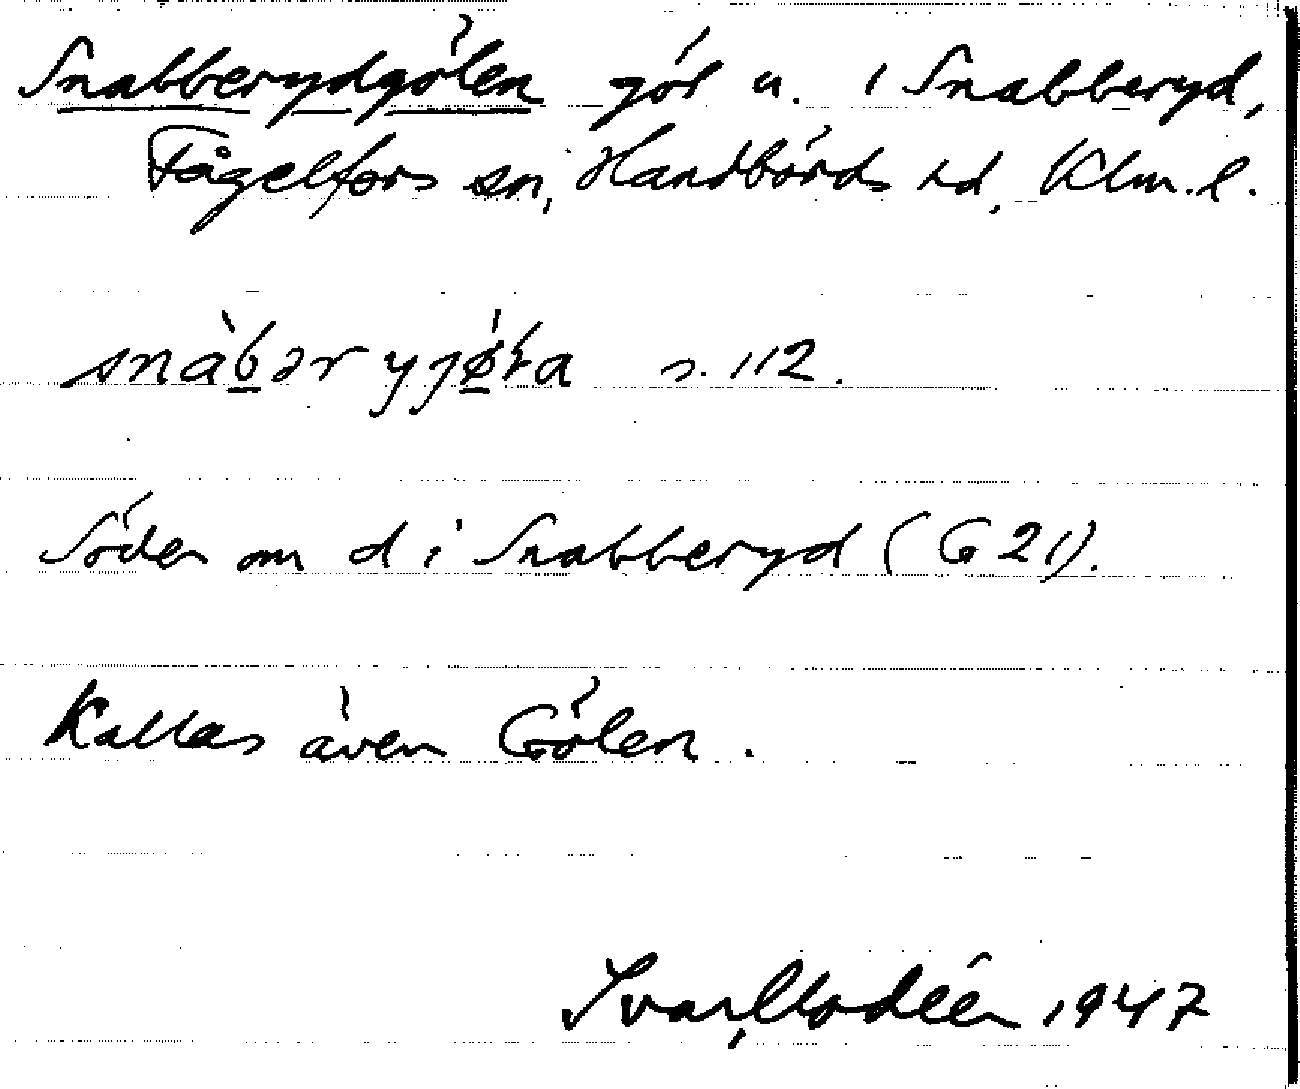 Snabberydgölen göl u. i Snabberyd,
Fågelfors sn, Handbörds hd, Klm. l.
s. 112.
Söder om d i Snabberyd (G 21).
Kallas även Gölen.
Ivar Modéer 1947